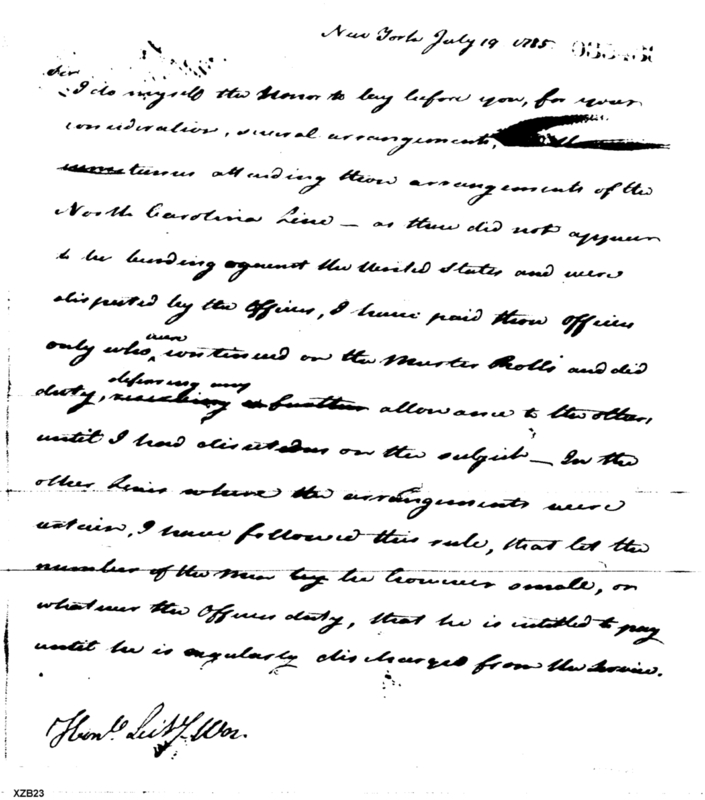 New York July 19 1785
Sir
I do myself the Honor to lay before you, for your
consideration, several arrangements,
attending those arrangements of the
North Carolina Line — as these did not appear
to be binding against the United States and were
disputed by the Officers, I have paid those Officers
only who were continued on the Muster Rolls and did
duty, refusing any further allowance to the others,
until I had directions on the subject — In the
other Lines where the arrangements were
certain, I have followed this rule, that let the
number of the Men be however small, or
whatever the Officers duty, that he is intitled to pay
until he is regularly discharged from the Service.
Honble. Secy. War.
XZB23